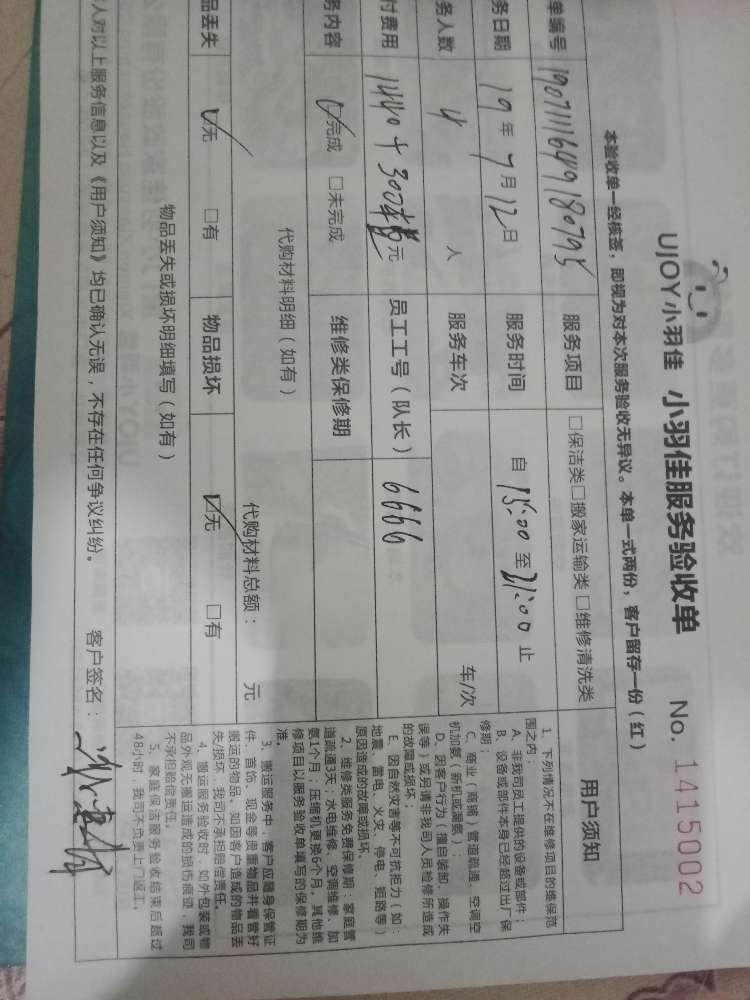 UJOY小羽佳 小羽佳服务验收单 No. 1415002
本验收单一经核签，即视为对本次服务验收无异议。本单一式两份，客户留存一份（红）
单编号 1907111649180795 服务项目 □保洁类□搬家运输类 □维修清洗类
务日期 19年7月12日 服务时间 自 15:00 至 21:00 止
务人数 4 人 服务车次 车/次
付费用 1440+300 元 员工工号（队长） 6666
务内容 ☑完成 □未完成 维修类保修期
代购材料明细（如有） 代购材料总额： 元
品丢失 ☑无 □有 物品损坏 ☑无 □有
物品丢失或损坏明细填写（如有）
人对以上服务信息以及《用户须知》均已确认无误，不存在任何争议纠纷。 客户签名：
用户须知
1、下列情况不在维修项目的维保范
围之内：
A、非我司员工提供的设备或部件；
B、设备或部件本身已经超过出厂保
修期；
C、商业（商铺）管道疏通、空调空
机加氨（新机或漏氨）；
D、因客户行为（擅自装卸、操作失
误等）或另请非我司人员检修所造成
的故障或损坏；
E、因自然灾害等不可抗拒力（如：
地震、雷电、火灾、停电、短路等）
原因造成的故障或损坏。
2、维修类服务免费保修期：家庭管
道疏通3天；水电维修、空调维修、加
氨1个月；压缩机更换6个月，其他维
修项目以服务验收单填写的保修期为
准。
3、搬运服务中，客户应随身保管证
件、首饰、现金等贵重物品并看管好
搬运的物品。如因客户造成的物品丢
失/损坏，我司不承担赔偿责任。
4、搬运服务验收时，如外包装或物
品外观无搬运造成的损伤痕迹，我司
不承担赔偿责任。
5、家庭保洁服务验收结束后超过
48小时，我司不负责上门返工。